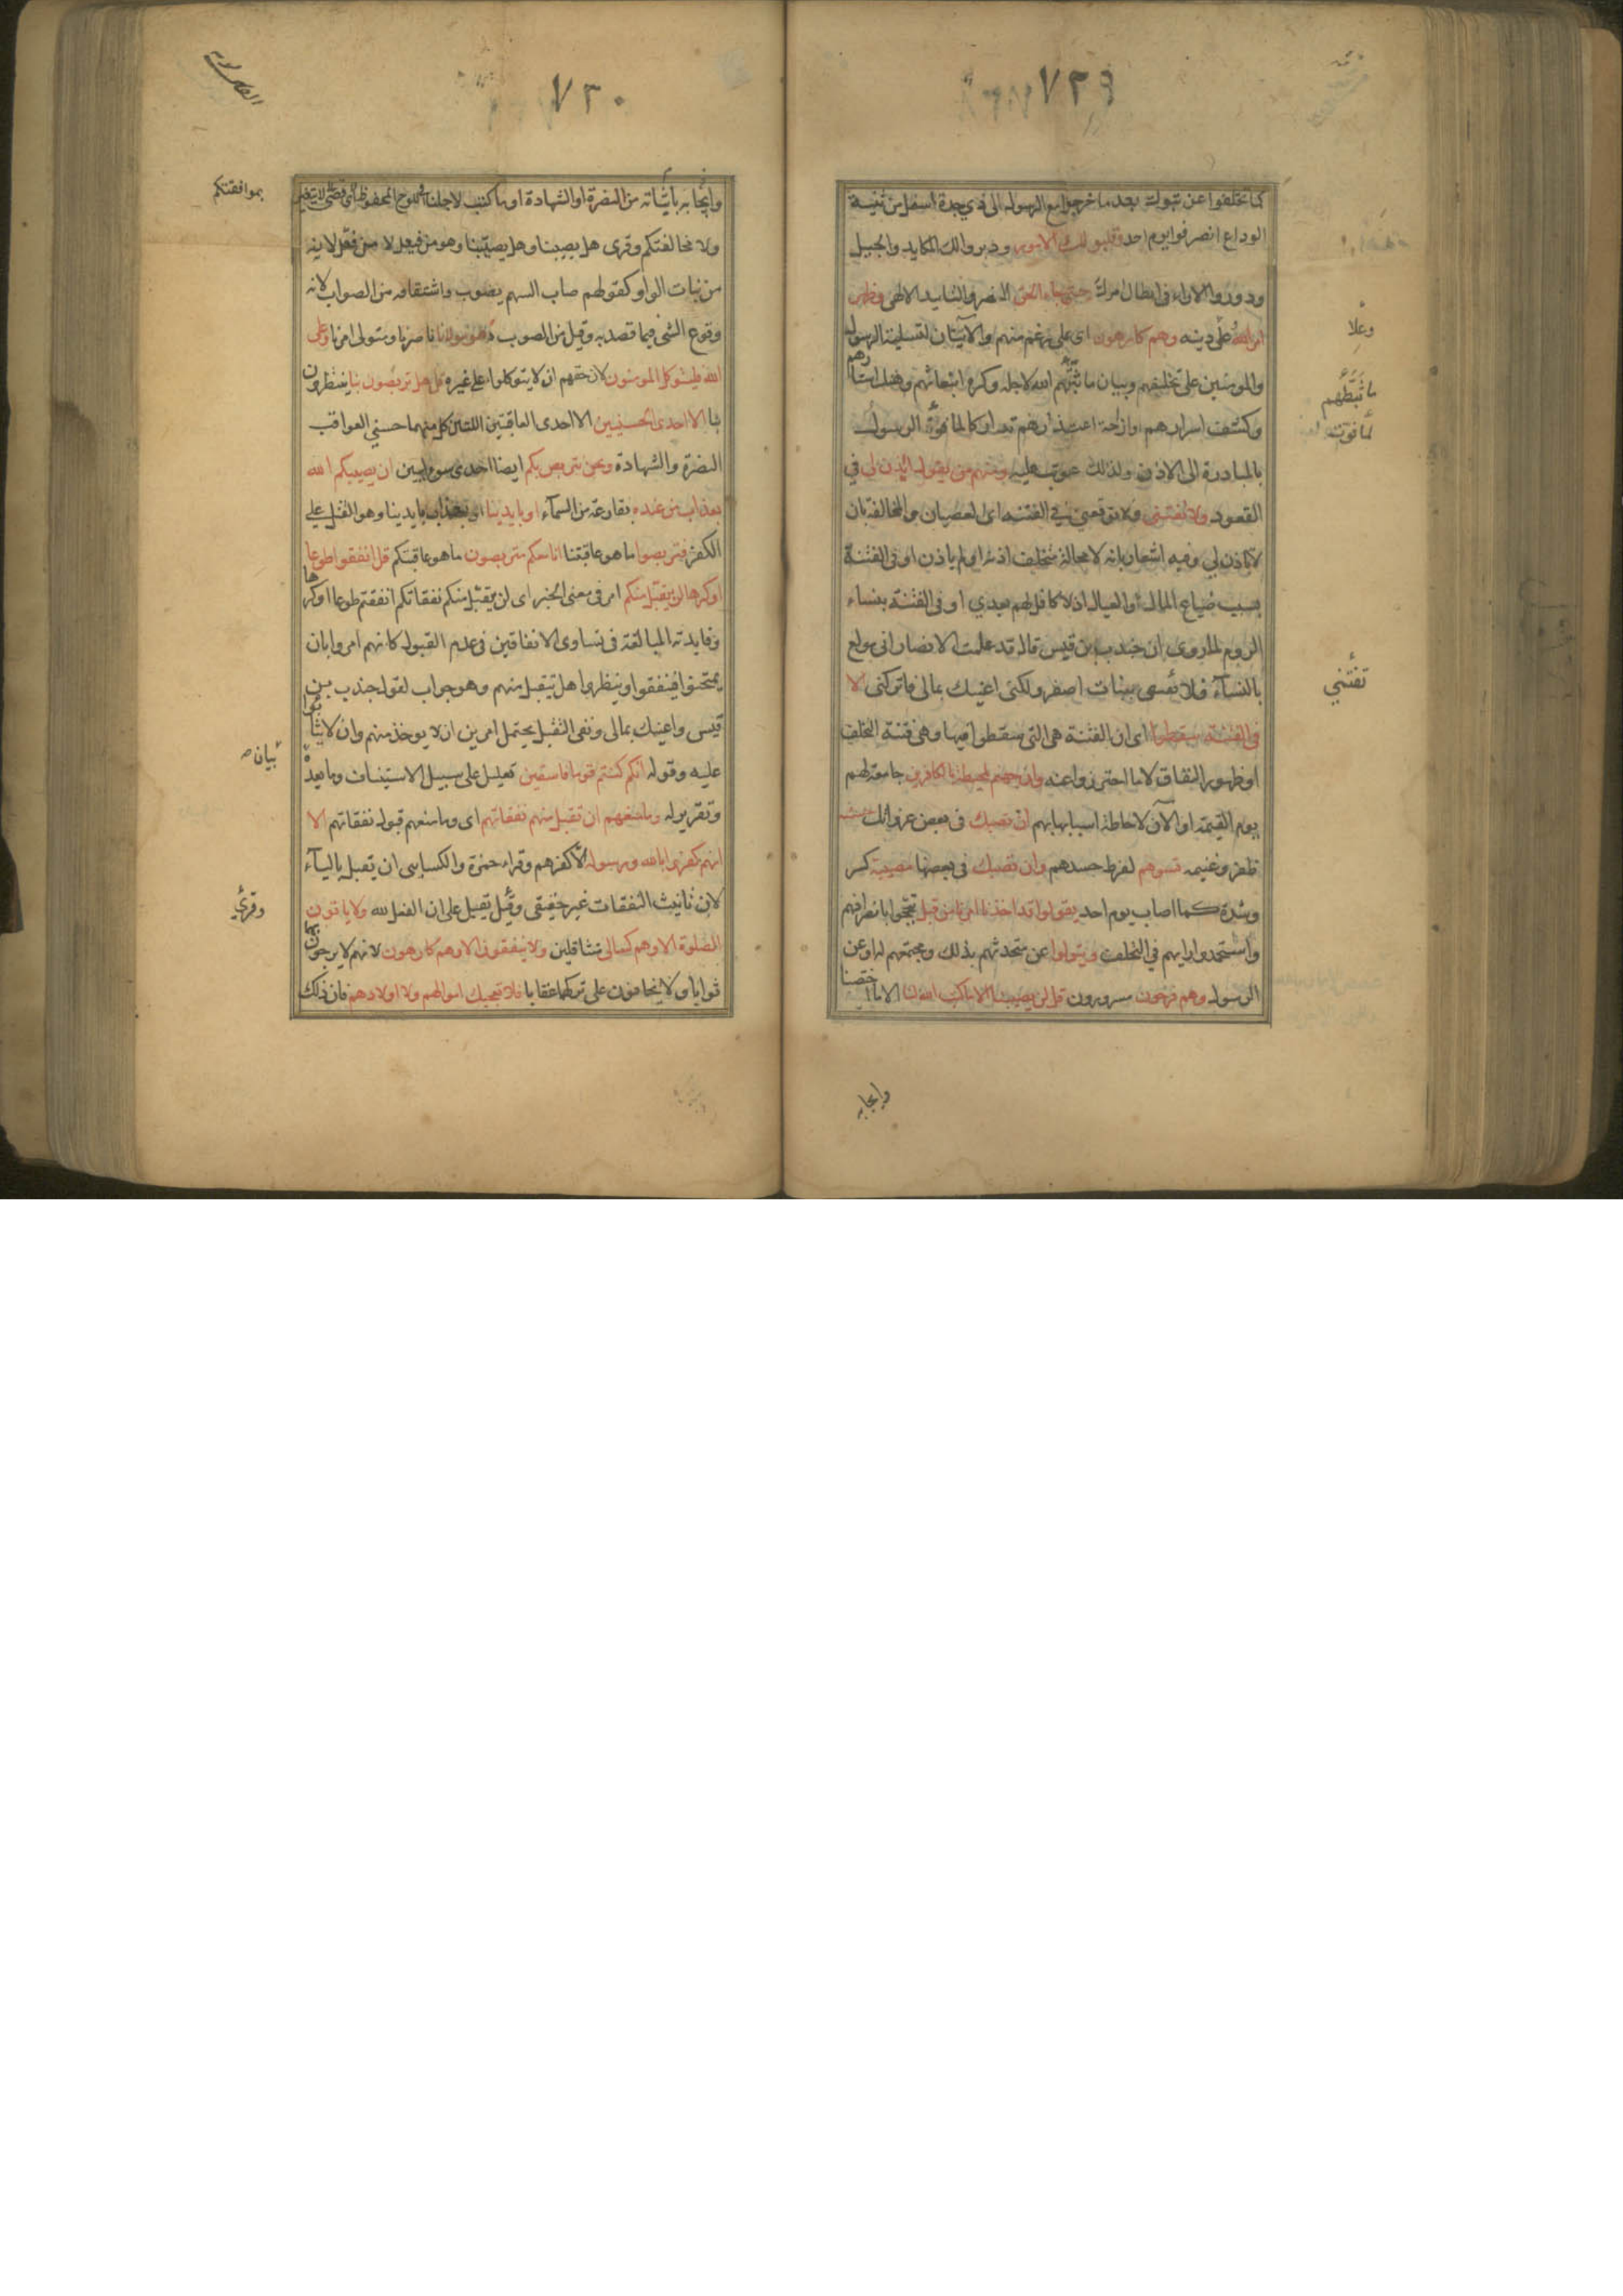 ٧٢٩
كما تخلفوا عن تبوك بعد ما خرجوا مع الرسول الى ذي جدة اسفل من ثنية
الوداع انصرفوا يوم احد وقلبوا لك الامور ودبروا لك المكايد والحيل
ودوروا الاراء في ابطال امرك حتى جاء الحق النصر والتاييد الالهى وظهر
امر الله على دينه وهم كارهون اى على رغم منهم والايتان لتسلية الرسول
والمومنين على تخلفهم وبيان ما ثبّطهم الله لاجله وكره انبعاثهم وهتك استارهم
وكشف اسرارهم وازاحة اعتذارهم تداركا لما فوّت الرسول
بالمبادرة الى الاذن ولذلك عوتب عليه ومنهم من يقول ائذن لي في
القعود ولا تفتنى ولا توقعني في الفتنه اى العصيان والمخالفة بان
لا تاذن لي وفيه اشعار بانه لا محالة متخلف اذن له او لم ياذن او في الفتنة
بسبب ضياع المال والعيال اذ لا كافل لهم بعدي او في الفتنة بنساء
الروم لما روى ان جندب بن قيس قال قد علمت الانصار انى مولع
بالنسآء فلا تفتنى ببنات اصفر ولكنى اعينك بمالى فاتركنى الا
في الفتنة سقطوا اى ان الفتنة هى التى سقطوا فيها وهى فتنة التخلف
او ظهور النفاق لا ما احترزوا عنه وان جهنم لمحيطة بالكافرين جامعة لهم
يوم القيمة او الآن لاحاطة اسبابها بهم ان تصبك فى بعض غزواتك حسنة
ظفر وغنيمه تسوهم لفرط حسدهم وان تصبك فى بعضها مصيبة كسر
وشدة كما اصاب يوم احد يقولوا قد اخذنا امرنا من قبل تبجحوا بانصرافهم
واستحمدوا رايهم في التخلف ويتولوا عن متحدثهم بذلك ومجتمعهم له او عن
الرسول وهم فرحون مسرورون قل لن يصيبنا الا ما كتب الله لنا الا ما اختصنا
وعلا
ما ثبّطهم
لما فوّت
تفتنّي
وايجابه
٧٣٠
وايجابه باثباته من النصرة او الشهادة او ما كتب لاجلنا في اللوح المحفوظ لا يتغير
ولا بمخالفتكم وقرى هل يصيبنا وهل يصيّبنا وهو من فيعل لا من فعّل لانه
من بنات الواو كقولهم صاب السهم يصوب واشتقاقه من الصواب لانه
وقوع الشى فيما قصد به وقيل من الصوب هو مولانا ناصرنا ومتولى امرنا وعلى
الله فليتوكل المومنون لان حقهم ان لا يتوكلوا على غيره قل هل تربصون بنا ينتظرون
بنا الا احدى الحسنيين الا احدى العاقبتين اللتين كل منهما حسني العواقب
النصرة والشهادة ونحن نتربص بكم ايضا احدى السوايين ان يصيبكم الله
بعذاب من عنده بقارعة من السمآء او بايدينا او بعذاب بايدينا وهو القتل على
الكفر فتربصوا ما هو عاقبتنا انا معكم متربصون ما هو عاقبتكم قل انفقوا طوعا
او كرها لن يقبل منكم امر فى معنى الخبر اى لن يقبل منكم نفقاتكم انفقتم طوعا او كرها
وفايدته المبالغة فى تساوى الانفاقين في عدم القبول كانهم امروا بان
يمتحنوا فينفقوا وينظروا هل يتقبل منهم وهو جواب لقول جندب بن
قيس واعينك بمالى ونفى التقبل يحتمل امرين ان لا يوخذ منهم وان لا يثابوا
عليه وقوله انكم كنتم قوما فاسقين تعليل على سبيل الاستيناف وما بعده
وتقرير له وما منعهم ان تقبل منهم نفقاتهم اى وما منعهم قبول نفقاتهم الا
انهم كفروا بالله ورسوله الا كفرهم وقراء حمزة والكسايى ان يقبل باليآء
لان تانيث النفقات غير حقيقى وقيل يقبل على ان الفعل لله ولا ياتون
الصلوة الا وهم كسالى متثاقلين ولا ينفقون الا وهم كارهون لانهم لا يرجون بهما
ثوابا ولا يخافون على تركهما عقابا فلا تعجبك اموالهم ولا اولادهم فان ذلك
بموافقتكم
بيان
وقرئ